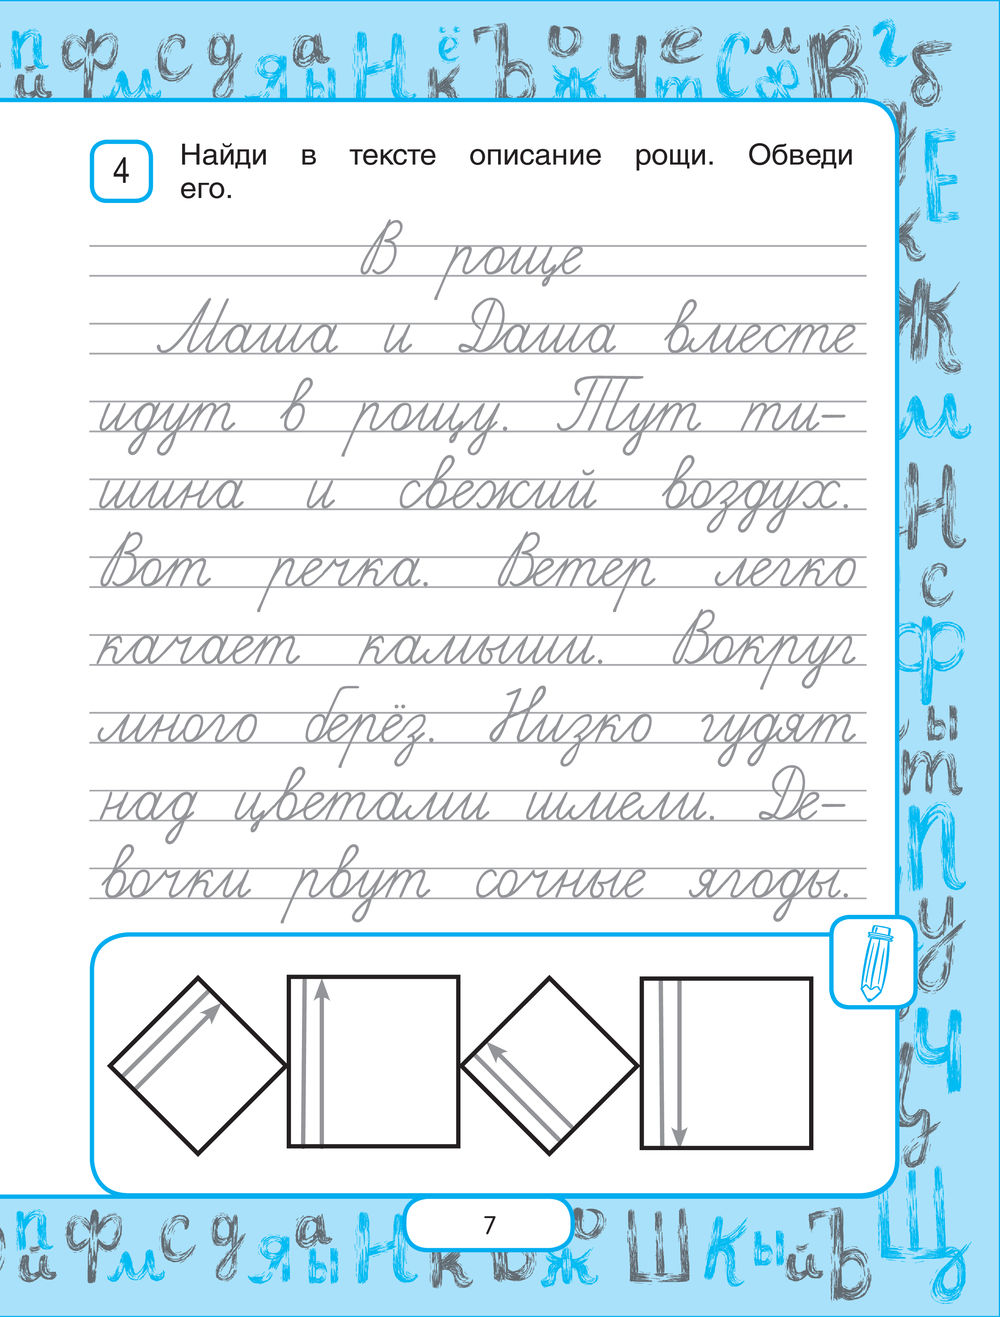 пфсдаНёЪоЧеСмВгб
ймяыкжтф
4
Найди в тексте описание рощи. Обведи
его.
В роще
Маша и Даша вместе
идут в рощу. Тут ти-
шина и свежий воздух.
Вот речка. Ветер легко
качает камыши. Вокруг
много берёз. Низко гудят
над цветами шмели. Де-
вочки рвут сочные ягоды.
7